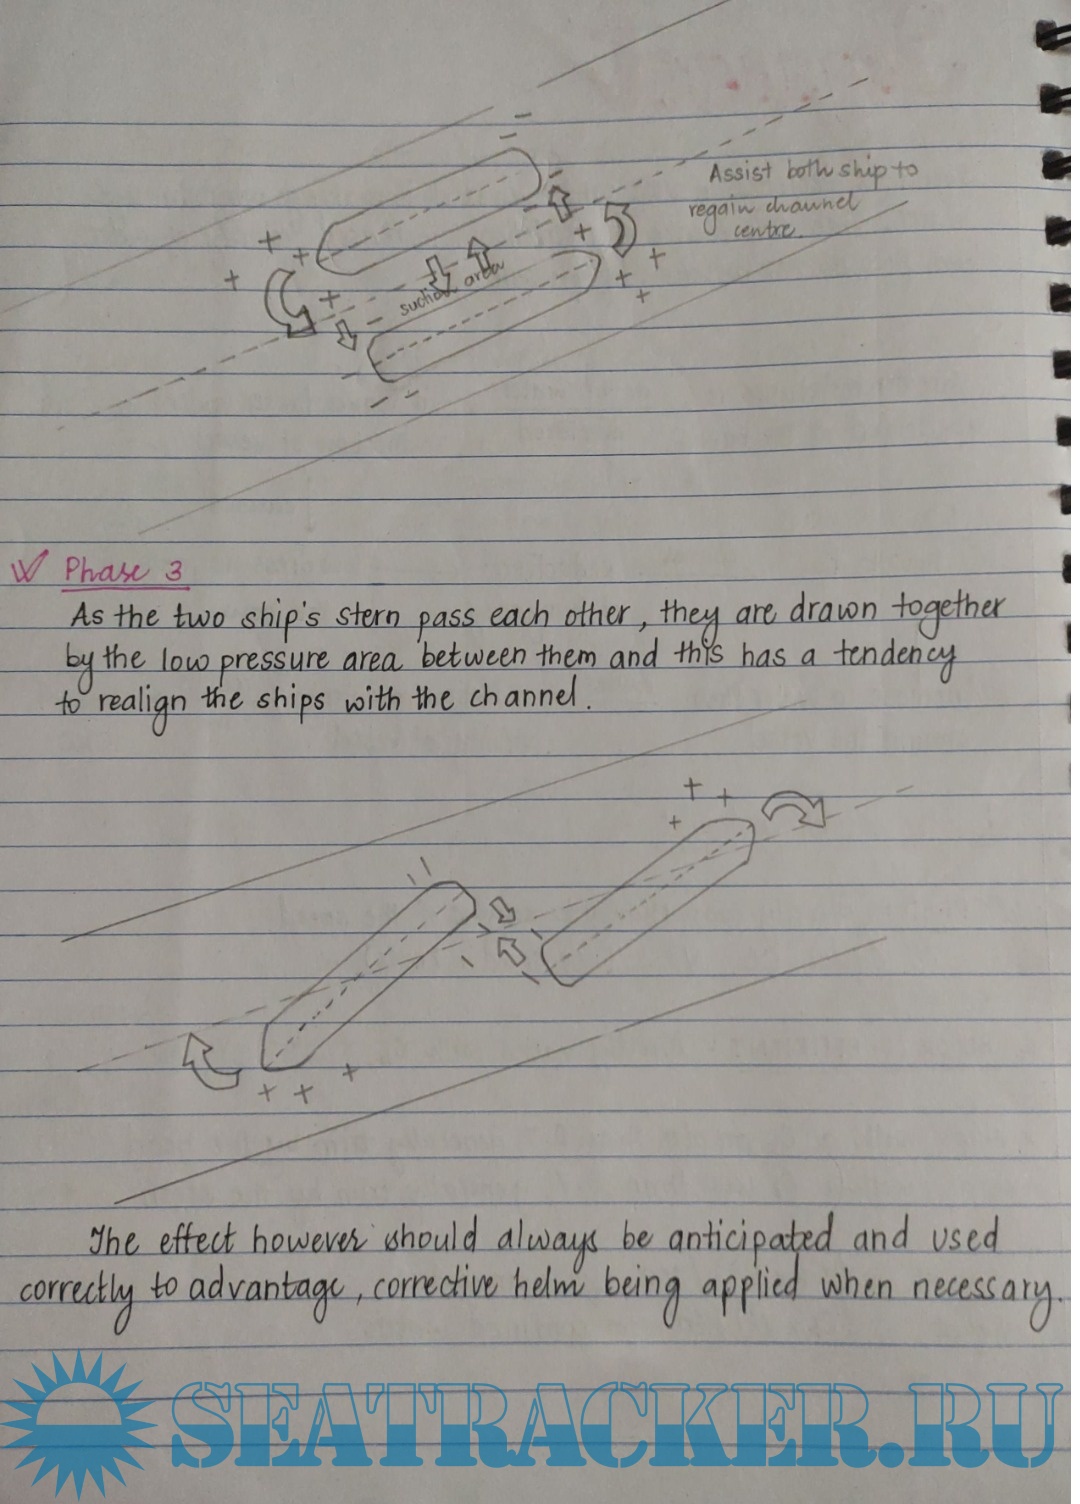 Assist both ship to
regain channel
centre.
suction area
Phase 3
As the two ship's stern pass each other, they are drawn together
by the low pressure area between them and this has a tendency
to realign the ships with the channel.
The effect however should always be anticipated and used
correctly to advantage, corrective helm being applied when necessary.
SEATRACKER.RU